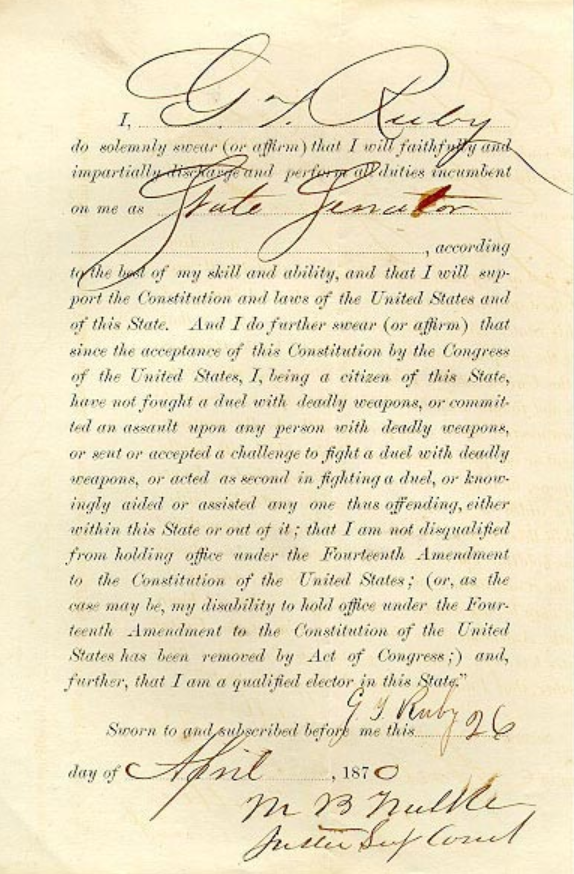 I, G. T. Ruby
do solemnly swear (or affirm) that I will faithfully and
impartially discharge and perform all duties incumbent
on me as State Senator
, according
to the best of my skill and ability, and that I will sup-
port the Constitution and laws of the United States and
of this State. And I do further swear (or affirm) that
since the acceptance of this Constitution by the Congress
of the United States, I, being a citizen of this State,
have not fought a duel with deadly weapons, or commit-
ted an assault upon any person with deadly weapons,
or sent or accepted a challenge to fight a duel with deadly
weapons, or acted as second in fighting a duel, or know-
ingly aided or assisted any one thus offending, either
within this State or out of it; that I am not disqualified
from holding office under the Fourteenth Amendment
to the Constitution of the United States; (or, as the
case may be, my disability to hold office under the Four-
teenth Amendment to the Constitution of the United
States has been removed by Act of Congress;) and,
further, that I am a qualified elector in this State."
G T Ruby
Sworn to and subscribed before me this 26
day of April, 1870
M B
Court